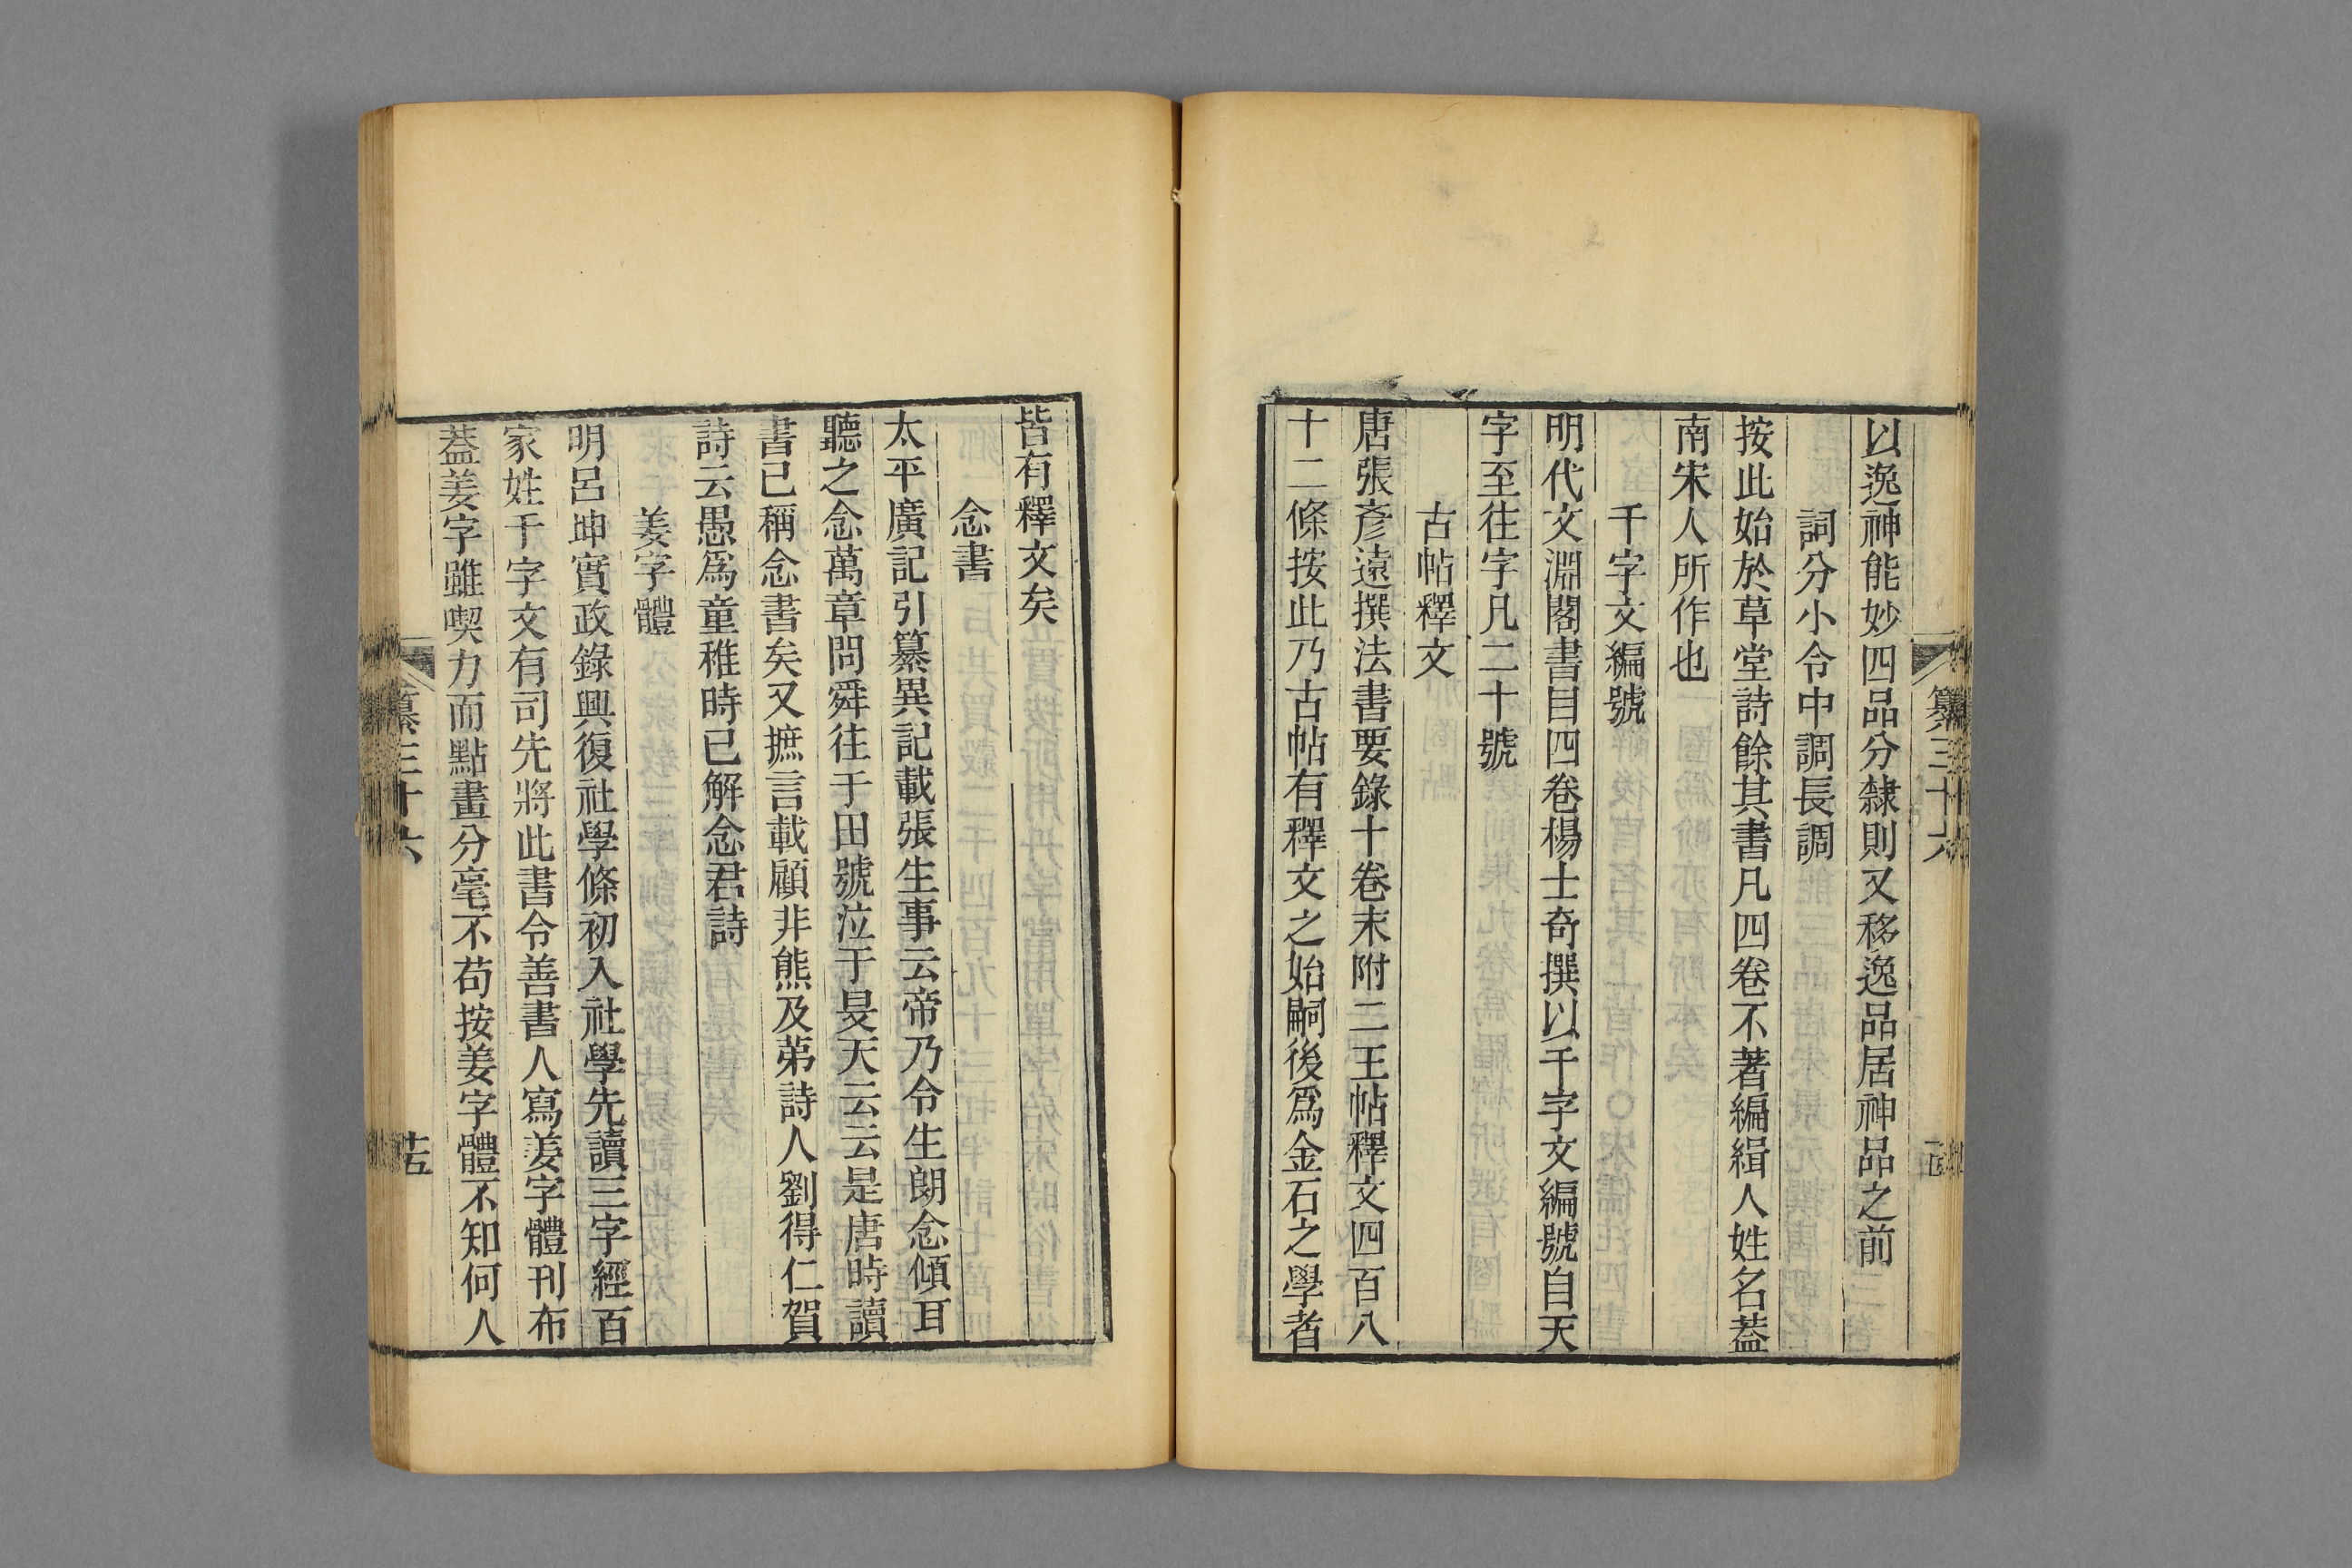 以逸神能妙四品分隸則又移逸品居神品之前
詞分小令中調長調
按此始於草堂詩餘其書凡四卷不著編緝人姓名葢
南宋人所作也
千字文編號
明代文淵閣書目四卷楊士奇撰以千字文編號自天
字至往字凡二十號
古帖釋文
唐張彥遠撰法書要錄十卷末附二王帖釋文四百八
十二條按此乃古帖有釋文之始嗣後爲金石之學者
皆有釋文矣
念書
太平廣記引纂異記載張生事云帝乃令生朗念傾耳
聽之念萬章問舜往于田號泣于旻天云云是唐時讀
書已稱念書矣又摭言載顧非熊及苐詩人劉得仁賀
詩云愚爲童稚時已解念君詩
姜字體
明呂坤實政錄興復社學條初入社學先讀三字經百
家姓千字文有司先將此書令善書人寫姜字體刊布
葢姜字雖喫力而點畫分毫不苟按姜字體不知何人
纂三十六